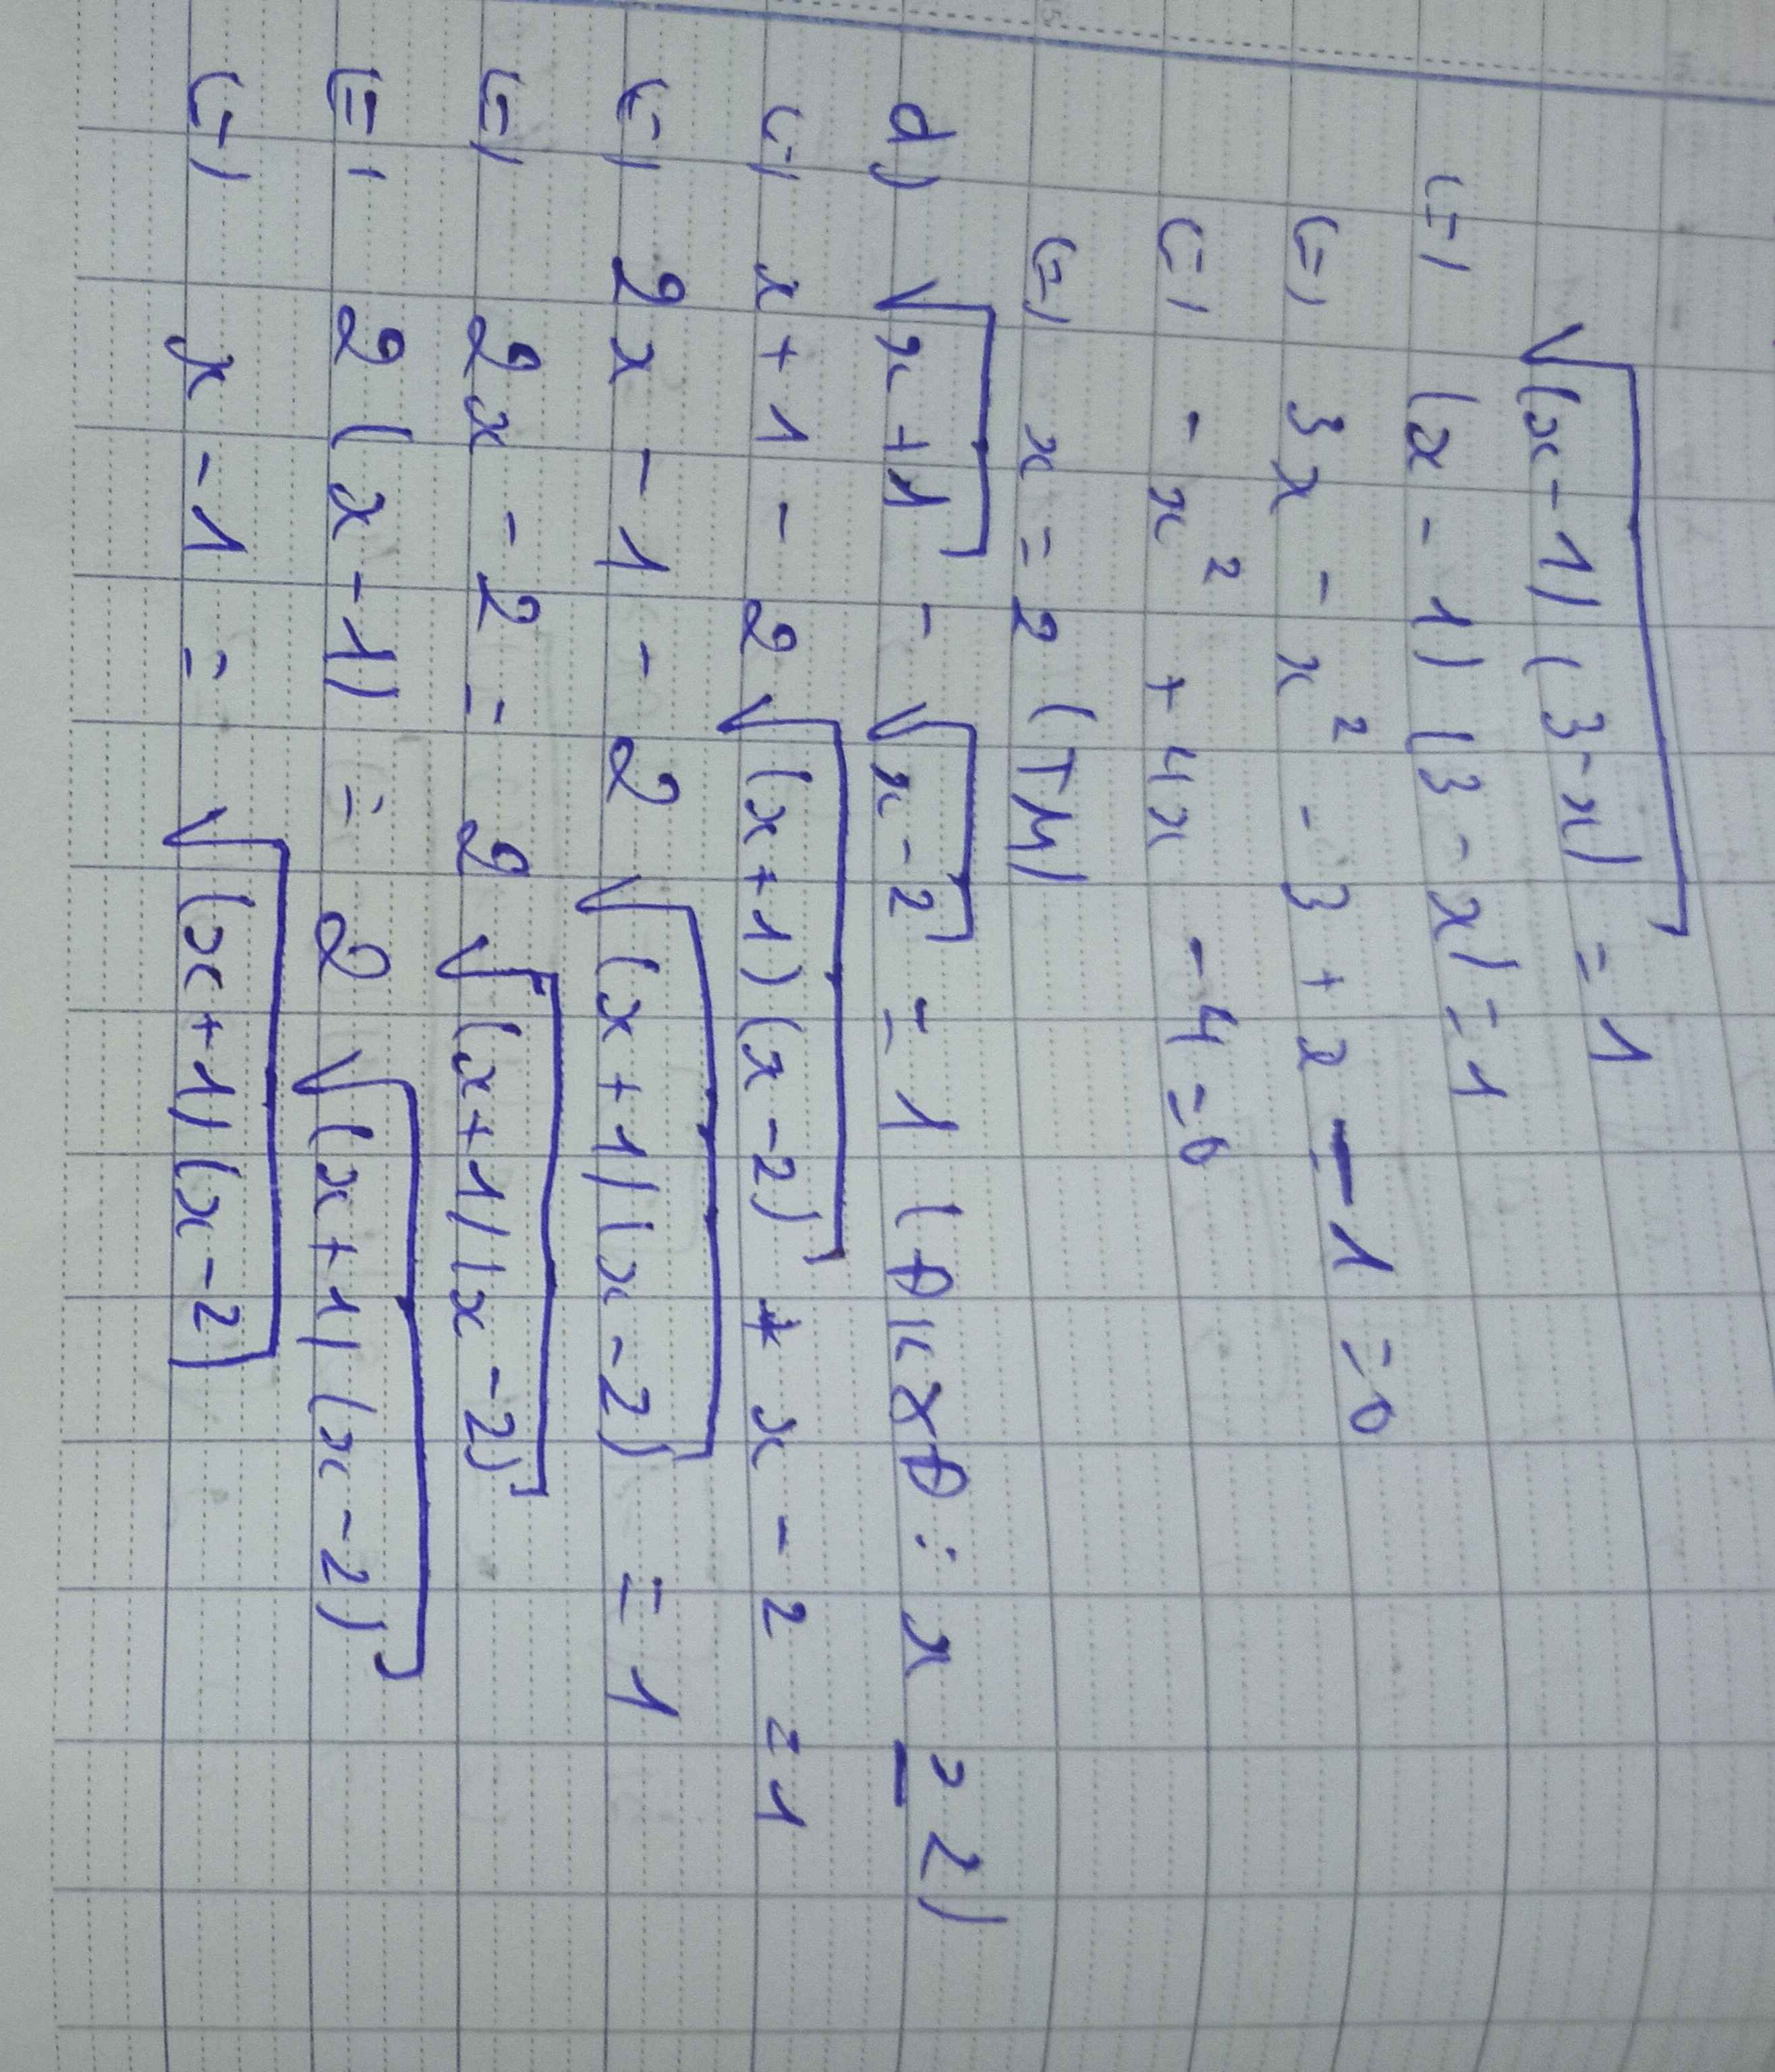 √(x-1)(3-x) = 1
(=) (x-1)(3-x) = 1
(=) 3x - x² - 3 + x - 1 = 0
(=) - x² + 4x - 4 = 0
(=) x = 2 (TM)
d) √x+1 - √x-2 = 1 (ĐKXĐ: x ≥ 2)
(=) x+1 - 2√(x+1)(x-2) + x - 2 = 1
(=) 2x - 1 - 2√(x+1)(x-2) = 1
(=) 2x - 2 = 2√(x+1)(x-2)
(=) 2(x-1) = 2√(x+1)(x-2)
(=) x - 1 = √(x+1)(x-2)